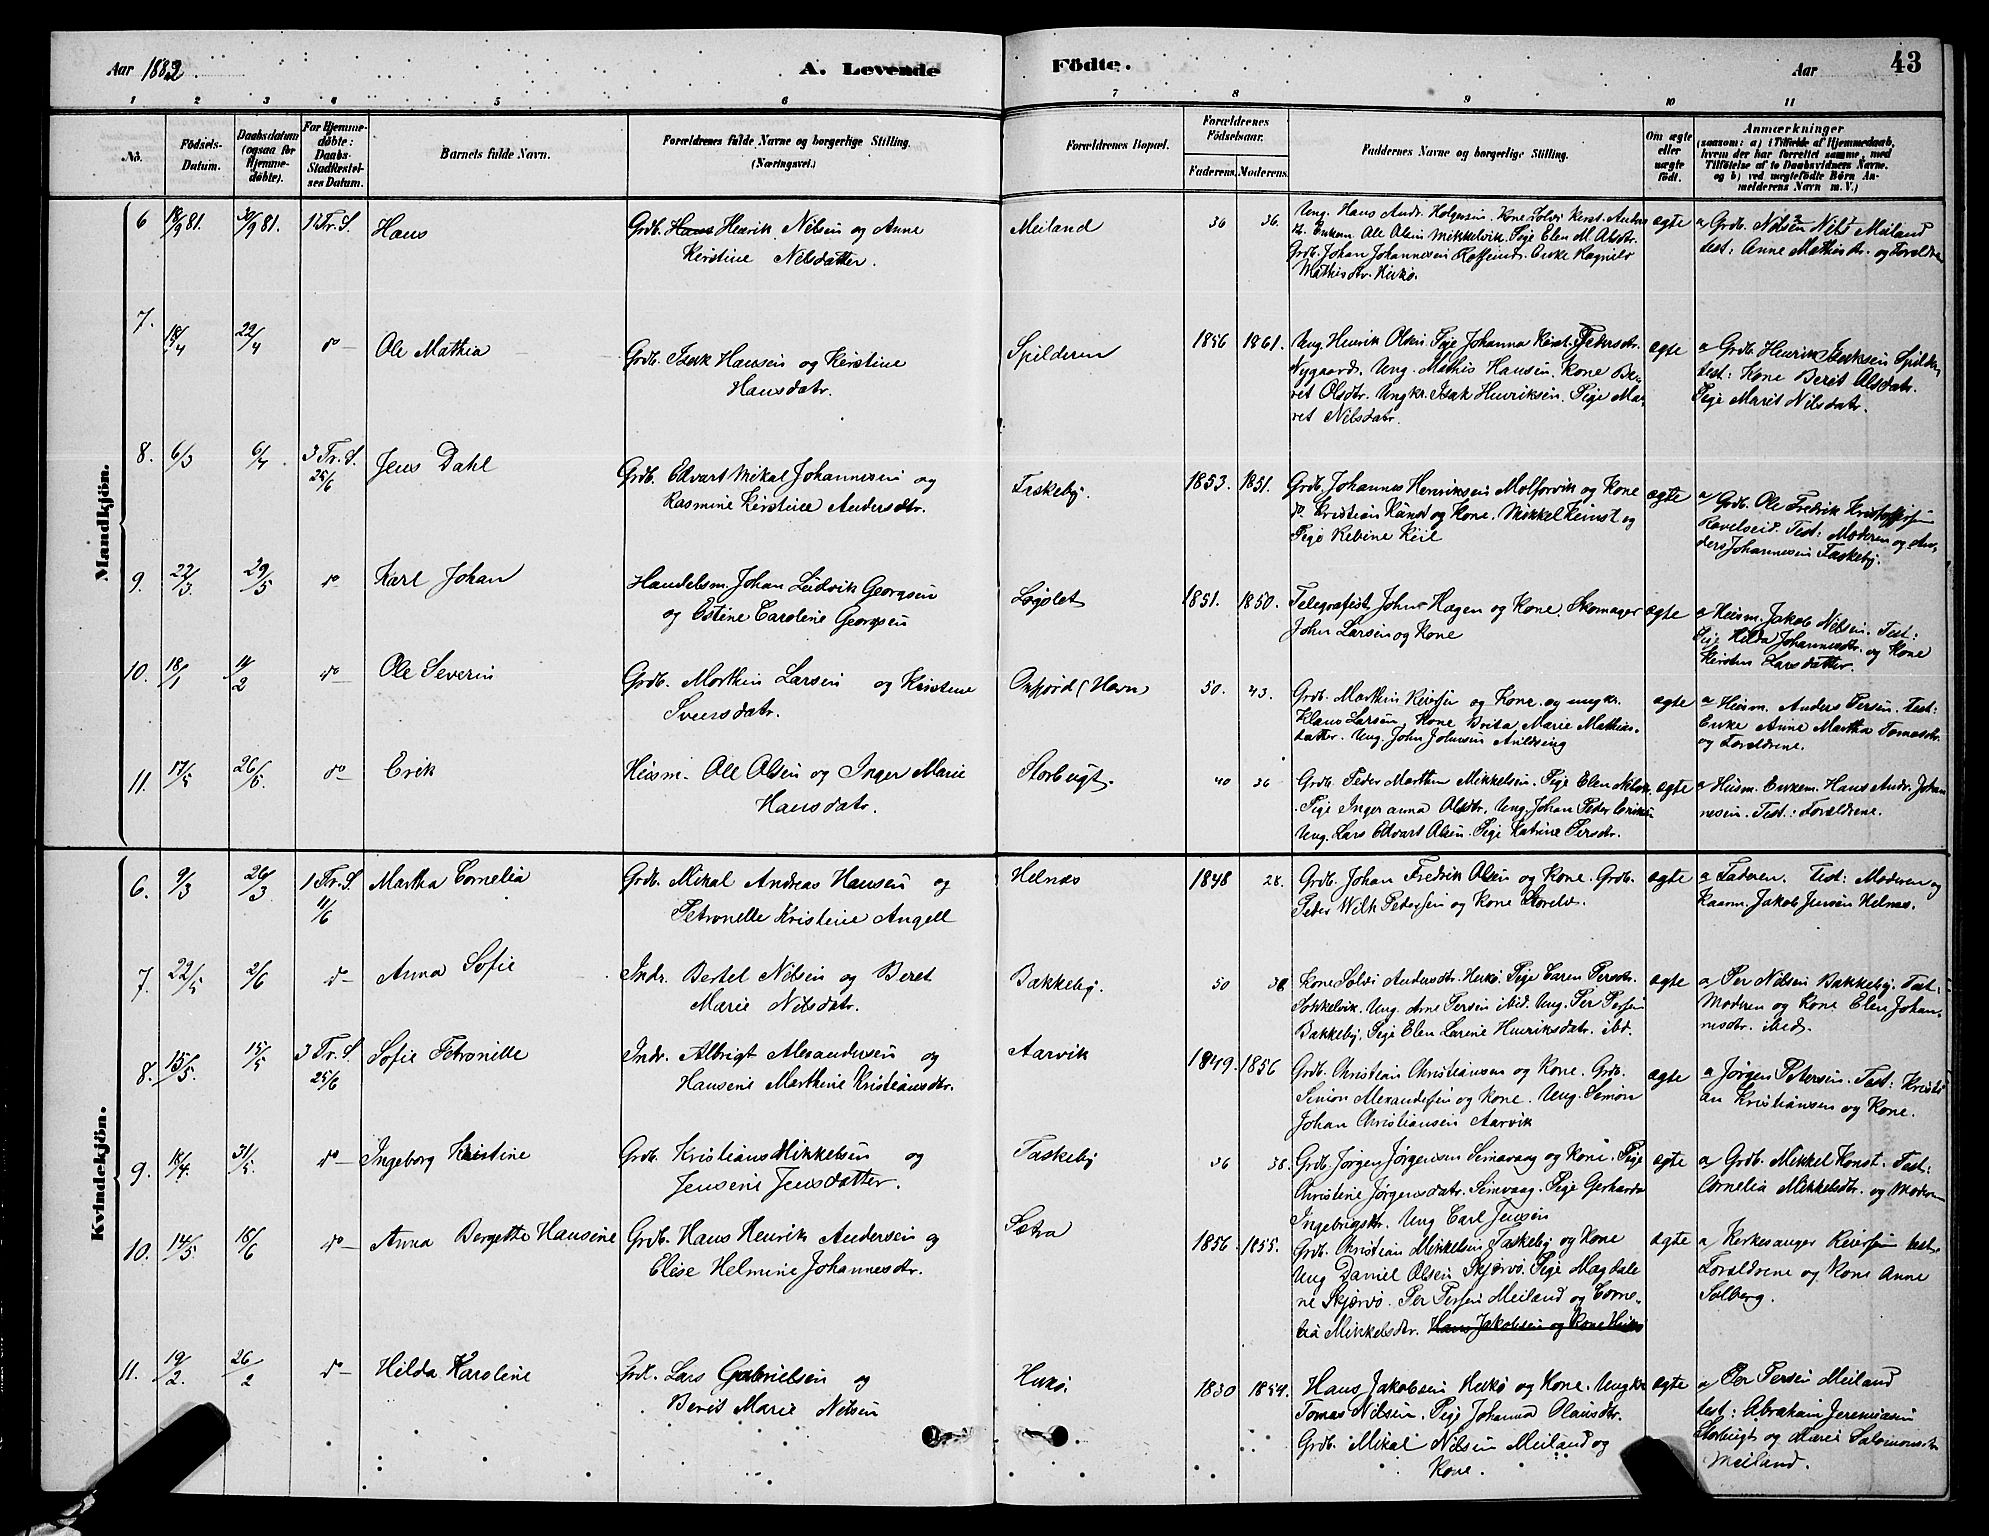 Aar 1882
A. Levende
Födte.
Aar
43
1 2 3 4 5 6 7 8 9 10 11
No.
Födsels-
Datum.
Daabsdatum
(ogsaa for
Hjemme-
döbte).
For Hjemme-
döbte:
Daabs-
Stadfæstel-
ses Datum.
Barnets fulde Navn.
Forældrenes fulde Navne og borgerlige Stilling.
(Næringsvei.)
Forældrenes Bopæl.
Forældrenes
Födselsaar.
Faderens.
Moderens.
Faddernes Navne og borgerlige Stilling.
Om ægte
eller
uægte
födt.
Anmærkninger
(saasom: a) i Tilfælde af Hjemmedaab,
hvem der har forrettet samme, med
Tilföielse af to Daabsvidners Navne.
og b) ved uægtefödte Börn An-
melderens Navn m. V.)
Mandkjön.
6
18/9 81.
30/9 81.
Hans
Grdb. Hans Henrik Nilsen og Anne
Kirstine Nilsdatter.
Meiland
36
36.
Ung. Hans Andr. Holgersen. Kone Solvi Kirst. Anders
Enkem Ole Olsen Mikkelvik. Pige Elen M. Olsdtr.
Grdb. Johan Johannesen Enke Ragnild
Mathisdtr. Hukø.
ægte
a Grdb. Nilsen Nils Meiland
test: Anne Mathisdtr. og Forældre
7.
18/4
22/4
do
Ole Mathia
Grdb. Isak Hansen og Kirstine
Hansdatr.
Spilderen
1856
1861.
Ung. Henrik Olsen. Pige Johanna Kirst. Pedersdtr.
Nygaard. Ung. Mathis Hansen. Kone Be-
ret Olsdtr. Ungkr. Isak Henriksen. Pige Mar-
ret Nilsdatr.
ægte
a Grdb. Henrik Isaksen Spilder,
test: Kone Berit Olsdatr.
Pige Marit Nilsdatr.
8.
6/3
6/4.
3 Tr. S.
25/6
Jens Dahl
Grdb. Edvart Mikal Johannesen og
Rasmine Kirstine Andersdtr.
Taskeby.
1853.
1851.
Grdb. Johannes Henriksen Molforvik og Kone
do. Kristian Kunst og Kone. Mikkel Kunst og
Pige Rebine Keil
ægte
a Grdb. Ole Fredrik Kristoffersen
Ravelseid. Test: Moderen og An-
ders Johannesen Taskeby.
9.
22/3.
29/5
do
Karl Johan
Handelsm. Johan Ludvik Georgsen
og Estine Caroline Georgsen
Løgslet
1851.
1850.
Telegrafist John Hagen og Kone. Skomager
John Larsen og Kone
ægte
a Huism. Jakob Nilsen. Test:
Pige Hilda Johannesdtr. og Kone
Kirsten Larsdatter.
10.
18/1
14/2
do
Ole Severin
Grdb. Morthen Larsen og Kristine
Sversdatr.
Oxfjord (Havn)
50.
43.
Grdb. Marthin Reiersen og Kone og ungkr.
Klaus Larsen, Kone Brita Marie Mathias-
datter. Ung. John Johnsen
ægte
a Huism. Anders Persen. Test:
Enke Anne Martha Tomasdtr.
og Forældrene.
11.
17/5
26/5.
do
Erik
Huism. Ole Olsen og Inger Marie
Hansdatr.
Storbugt.
40
36
Grdb. Peder Marthin Mikkelsen. Pige Elen Nilsdtr.
Pige Inger Anna Olsdtr. Ung. Johan Peder Eriksen
Ung. Lars Edvart Olsen. Pige Katrine Persdtr.
ægte
a Huism. Enkem. Hans Andr. Johan
nesen. Test: Forældrene.
Kvindekjön.
6.
9/3
26/3
1 Tr. S.
11/6
Martha Cornelia
Grdb. Mikal Andreas Hansen og
Petronelle Kristine Angell
Helnæs
1848
28.
Grdb. Johan Fredrik Olsen og Kone. Grdb.
Peder Wilh Pedersen og Kone Storelv.
ægte
a Faderen. Test: Moderen og
Kaarm. Jakob Jensen Helnæs.
7.
22/5
2/6
do
Anna Sofie
Indr. Bertel Nilsen og Beret
Marie Nilsdatr.
Bakkeby.
50
38
Kone Solvi Andersdtr. Hukø. Pige Caren Persdtr.
Sokkelvik. Ung. Arne Persen ibid. Ung. Per Persen
Bakkeby. Pige Elen Larine Henriksdatr. ibd.
ægte
a Per Nilsen Bakkeby. Test:
Modren og Kone Elen Johan-
nesdtr. ibid.
8.
15/5.
15/5
3 Tr. S.
25/6
Sofie Petronille
Indr. Albrigt Alexandersen og
Hansine Marthine Kristiansdtr.
Aarvik
1849.
1856
Grdb. Christian Christiansen og Kone. Grdb.
Simon Alexandersen og Kone. Ung. Simon
Johan Christiansen Aarvik
ægte
a Jørgen Petersen. Test: Kristi
an Kristiansen og Kone.
9.
18/4.
31/5.
do
Ingeborg Kristine
Grdb. Kristians Mikkelsen og
Jensine Jensdatter.
Taskeby
36
38.
Grdb. Jørgen Jørgensen Simavaag og Kone. Pige
Christine Jørgensdatr. Simvaag. Pige Gerharda
Ingebrigtsdtr. Ung Carl Jensen
ægte
a Grdb. Mikkel Konst. Test:
Cornelia Mikkelsdtr. og Moderen
10.
14/5
18/6
do
Anna Bergette Hansine
Grdb. Hans Henrik Andersen og
Elise Helmine Johannesdtr.
Sætra
1856.
1855.
Grdb. Christian Mikkelsen Taskeby og Kone
Ung Daniel Olsen Skjervø. Pige Magdale
ne Skjervø. Per Persen Meiland og Corne-
lia Mikkelsdtr. Hans Jakobsen og Kone Hukø
ægte
a Kirkesanger Reiersen test:
Forældrene og Kone Anne
Solberg.
11.
19/2.
26/2
do
Hilda Karoline
Grdb. Lars Gabrielsen og
Berit Marie Nilsen
Hukø.
1830
1854.
Hans Jakobsen Hukø og Kone. Ungkr
Tomas Nilsen. Pige Johanna Olausdtr.
Grdb. Mikal Nilsen Meiland og
Kone.
ægte
a Per Persen Meiland
test: Abraham Jeremiasen
Storbugt og Marie Salomonsdtr
Meiland.